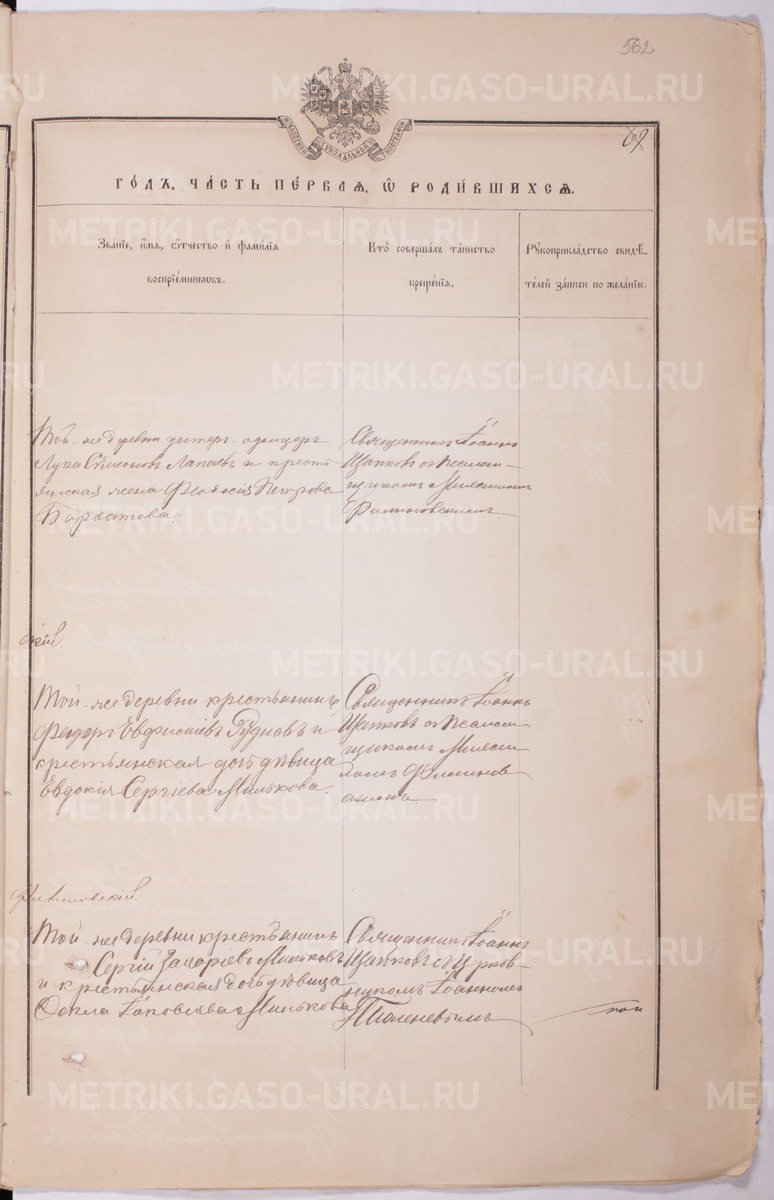 562
МОСКОВСКОЙ СѴНОДАЛЬНОЙ ТИПОГРАФІИ
ГО́ДЪ, ЧА́СТЬ ПЕ́РВАѦ, Ѡ҆ РОДИ́ВШИХСѦ.
Зва́нїе, и҆́мѧ, ѻ҆́тчество и҆ фами́лїѧ
воспрїе́мникѡвъ.
Кто̀ соверша́лъ та́инство
креще́нїѧ.
Рꙋкоприкла́дство свидѣ́-
телей за́писи по жела́нїю.
Той-же деревни унтеръ-офицеръ
Лука Симеоновъ Лапаевъ и кресть
янская жена Феодосія Петрова
Священникъ Іоаннъ
Щапковъ съ Псалом-
щикомъ
Филиновскимъ
скій.
Той-же деревни крестьянинъ
Федоръ Евфисіевъ Рудновъ и
крестьянская дочь дѣвица
Евдокія Сергіева Милькова.
Священникъ Іоаннъ
Щапковъ съ Псалом
щикомъ
Филинов
скимъ
Филиновскій.
Той-же деревни крестьянинъ
Сергій Захаріевъ Мильковъ
и крестьянская дочь дѣвица
Ѳекла Іаковлева Милькова
Священникъ Іоаннъ
Щапковъ съ Церков-
никомъ Іоанномъ
METRIKI.GASO-URAL.RU